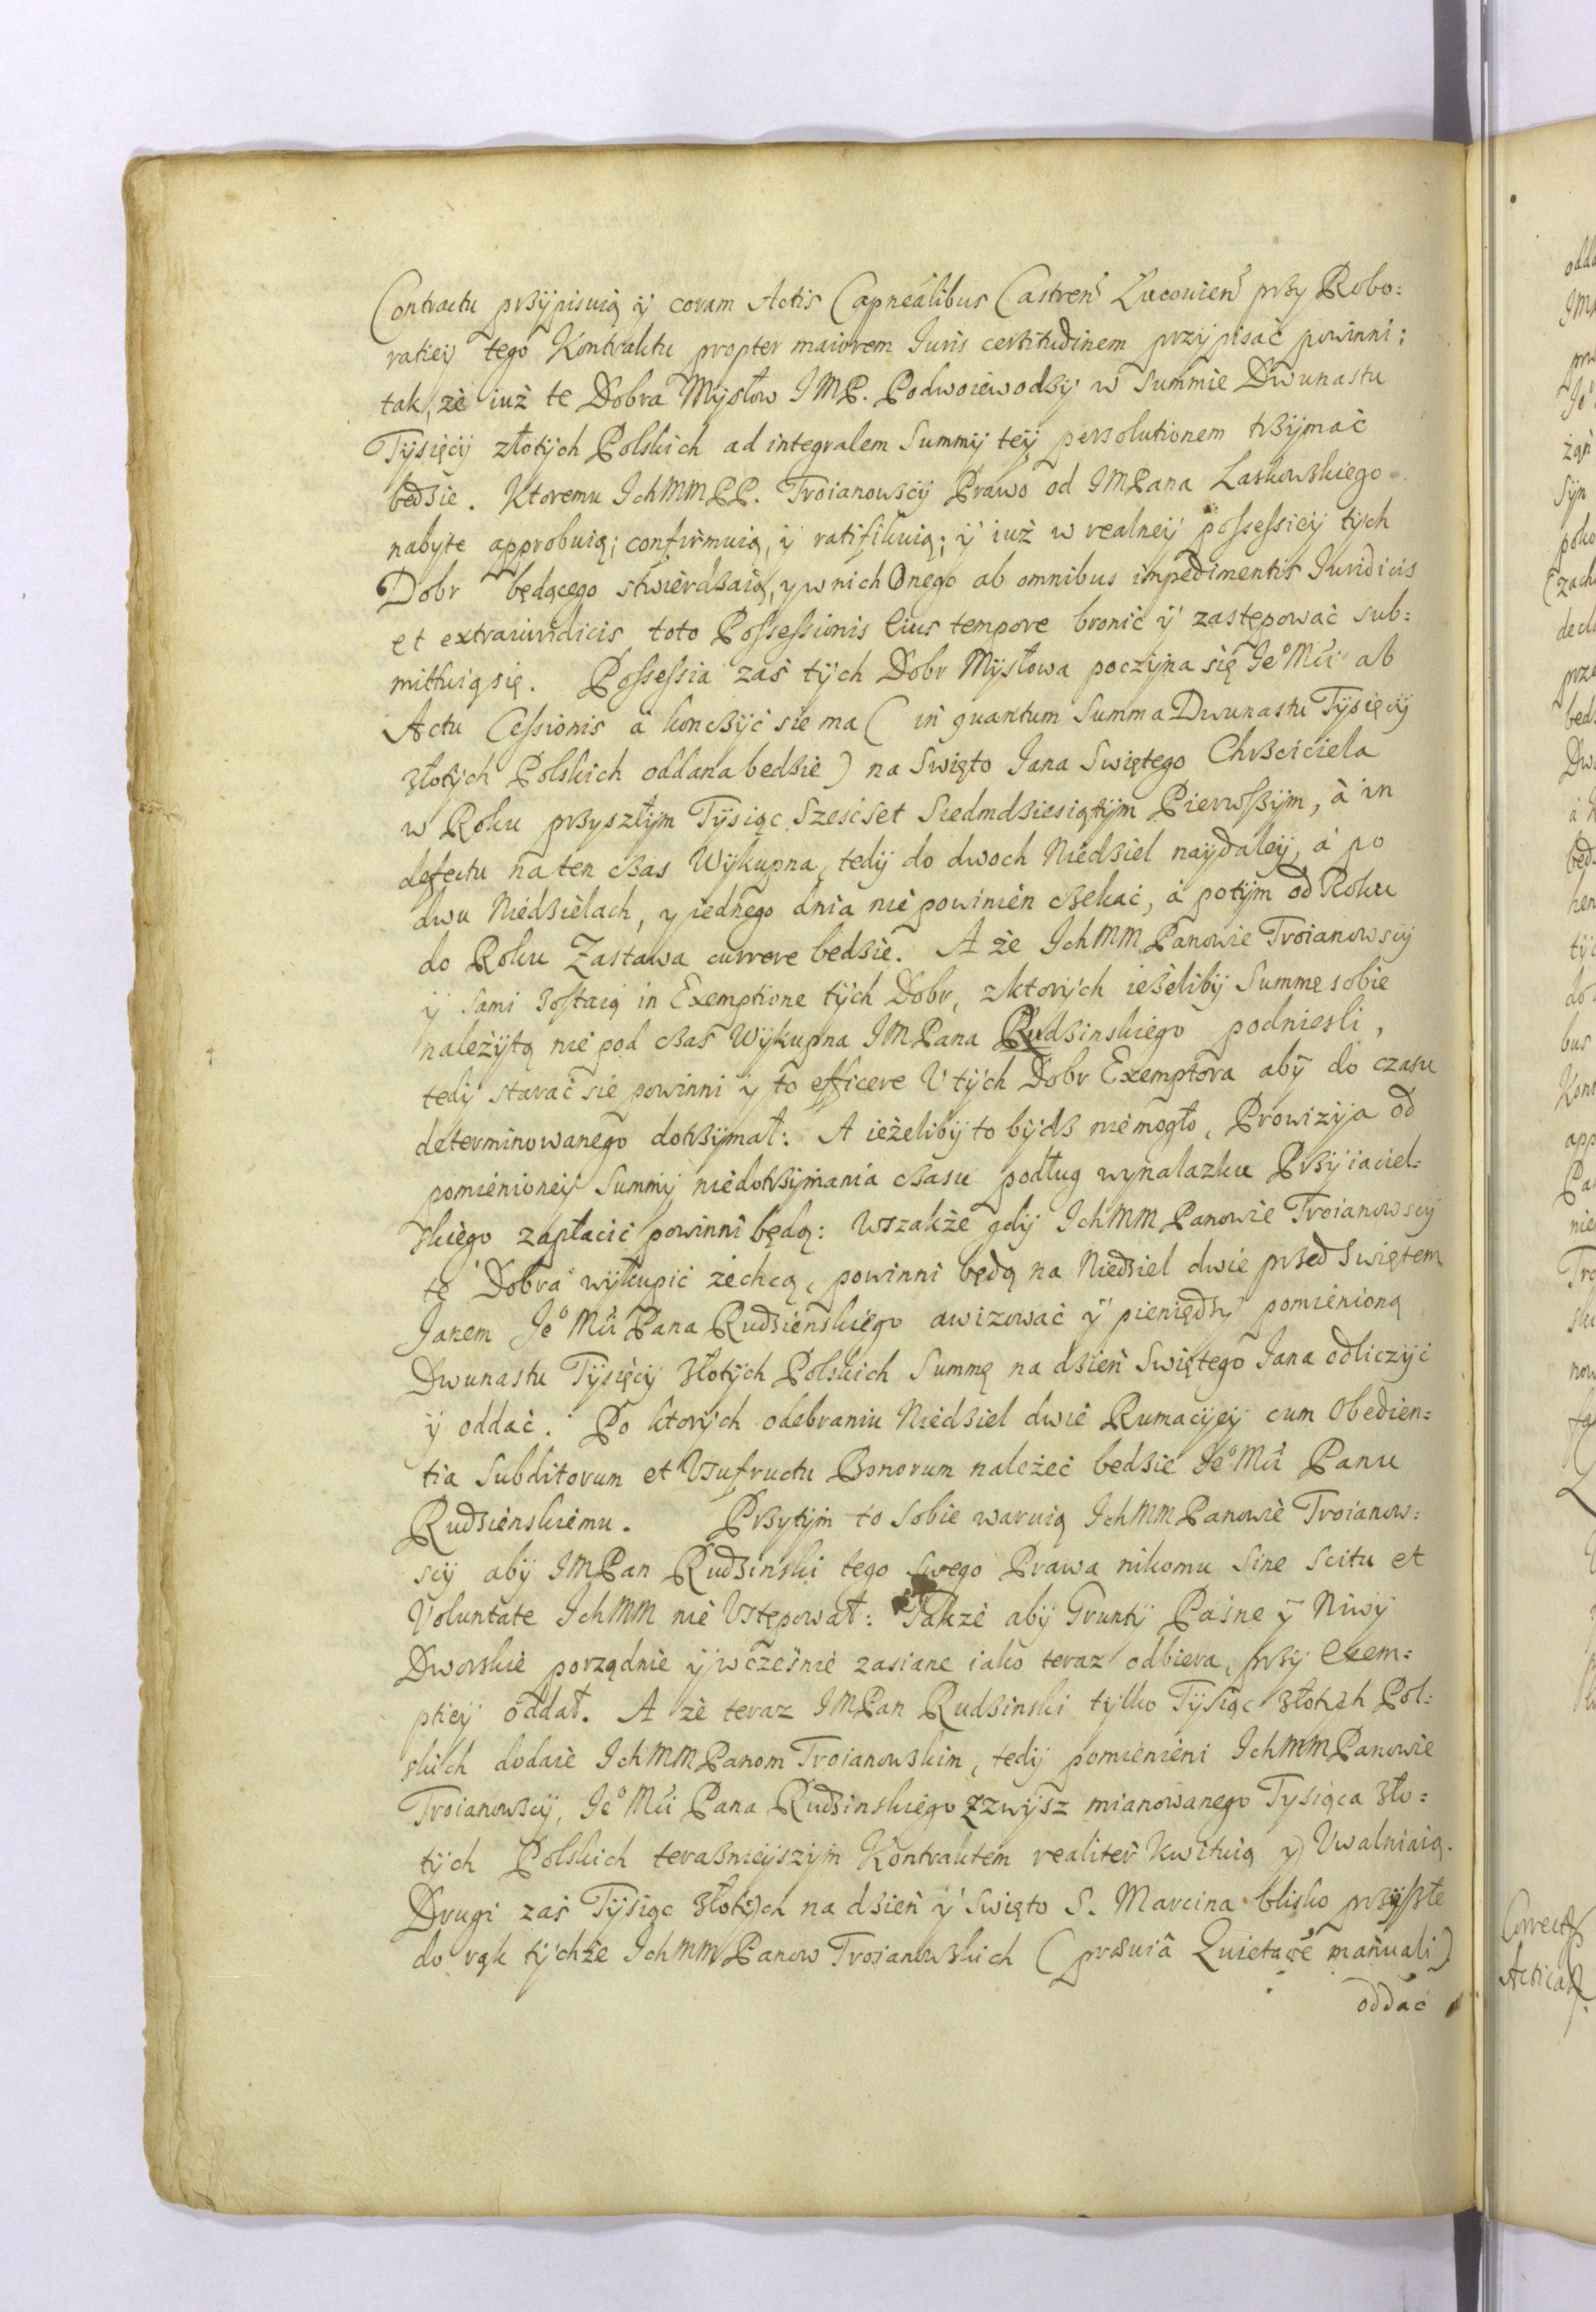 Contractu przÿpisuią ÿ coram Actis Capnealibus Castren Lucouien przy Robo:
ratieÿ tego Kontraktu propter maiorem Iuris certitudinem przÿpisać powinni:
tak, że iuż te Dobra Mÿsłow IMP. Podwoiewodzÿ w Summie Dwunastu
Tÿsięcÿ złotÿch Polskich ad integralem Summÿ teÿ persolutionem trzÿmać
będzie. Ktoremu IchMMPP. Troianowscÿ Prawo od IMPana Laskowskiego
nabyte approbuią; confirmuią, ÿ ratifikuią; ÿ iuż w realneÿ possessieÿ tÿch
Dobr będącego stwierdzaią, y w nich Onego ab omnibus impedimentis Iuridicis
et extraiuridicis toto Possessionis Eius tempore bronić ÿ zastępować sub:
mittuią się. Possessia zaś tÿch Dobr Mÿsłowa poczÿna się Jeº Mći ab
Actu Cessionis a konczÿć sie ma ( in quantum Summa Dwunastu Tÿsięcÿ
złotÿch Polskich oddana bedzie ) na Swięto Jana Swiętego Chrzciciela
w Roku przyszłÿm Tÿsiąc Sześćset Siedmdziesiątÿm Pierwszÿm, à in
defectu na ten czas Wÿkupna, tedÿ do dwoch Niedziel naÿdaleÿ, à po
dwu Niedzielach, y iednego dnia nie powinien czekać, à potÿm od Roku
do Roku Zastawa currere bedzie. A że IchMM Panowie Troianowscÿ
ÿ sami zostaią in Exemptione tÿch Dobr, z ktorÿch ieżelibÿ Summe sobie
należÿtą nie pod czas Wÿkupna IMPana Rudzinskiego podniesli,
tedÿ starać sie powinni ÿ to efficere U tÿch Dobr Exemptora abÿ do czasu
determinowanego dotrzÿmał: A ieżelibÿ to bÿdz nie mogło, Prowizÿa od
pomienioneÿ Summÿ niedotrzÿmania czasu podług wynalazku Przÿiaciel:
skiego zapłacić powinni będą: Wszakże gdÿ IchMM Panowie Troianowscÿ
te Dobra wÿkupić zechcą, powinni będą na Niedziel dwie przed Swiętem
Janem Jeº Mći Pana Rudzienskiego awizować ÿ pieniędzy pomienioną
Dwunastu Tÿsięcÿ złotÿch Polskich Summę na dzień Swiętego Jana odliczÿć
ÿ oddać. Po ktorÿch odebraniu Niedziel dwie Rumacÿeÿ cum Obedien:
tia Subditorum et Usufructu Bonorum należeć bedzie Jeº Mći Panu
Rudzienskiemu. Przytÿm to sobie waruią IchMM Panowie Troianow:
scÿ abÿ IMPan Rudzinski tego swego Prawa nikomu Sine Scitu et
Voluntate IchMM nie Ustępował: Także abÿ Gruntÿ Paśne ÿ Niwÿ
Dworskie porządnie ÿ wcześnie zasiane iako teraz odbiera, przÿ exem:
ptieÿ oddał. A że teraz IMPan Rudzinski tÿlko Tÿsiąc złotÿch Pol:
skich dodaie IchMM Panom Troianowskim, tedÿ pomienieni IchMM Panowie
Troianowscÿ, Jeº Mći Pana Rudzinskiego zzwÿsz mianowanego Tysiąca zło:
tÿch Polskich teraznieÿszÿm Kontraktem realiter kwituią y Uwalniaią.
Drugi zaś Tÿsiąc złotÿch na dzień ÿ Swięto S. Marcina blisko przÿszłe
do rąk tÿchże IchMM Panow Troianowskich ( præuia Quietaõe manuali )
oddać